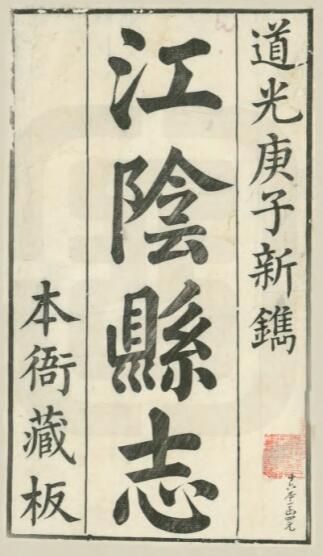 道光庚子新鐫
江陰縣志
本衙藏板